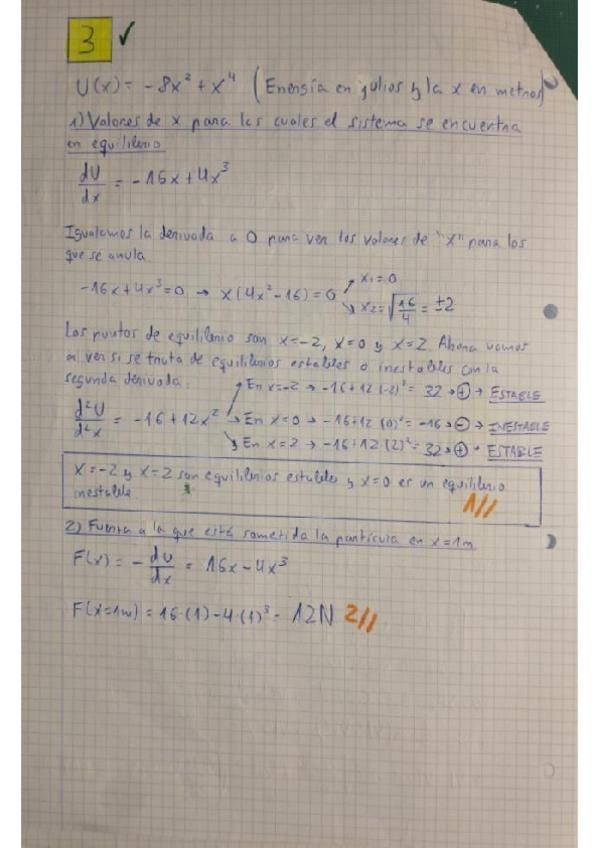 3 ✓
U(x) = -8x² + x⁴ (Energía en julios y la x en metros)
1) Valores de x para los cuales el sistema se encuentra
en equilibrio
dU/dx = -16x + 4x³
Igualamos la derivada a 0 para ver los valores de "x" para los
que se anula
-16x + 4x³ = 0 → x(4x² - 16) = 0 ↗ x₁ = 0
↘ x₂ = √(16/4) = ±2
Los puntos de equilibrio son x = -2, x = 0 y x = 2. Ahora vamos
a ver si se trata de equilibrios estables o inestables con la
segunda derivada:
↗ En x = -2 → -16 + 12(-2)² = 32 → ⊕ → ESTABLE
d²U/d²x = -16 + 12x² → En x = 0 → -16 + 12(0)² = -16 → ⊖ → INESTABLE
↘ En x = 2 → -16 + 12·(2)² = 32 → ⊕ → ESTABLE
x = -2 y x = 2 son equilibrios estables y x = 0 es un equilibrio
inestable 1//
2) Fuerza a la que está sometida la partícula en x = 1m
F(x) = - dU/dx = 16x - 4x³
F(x=1m) = 16·(1) - 4·(1)³ = 12N 2//